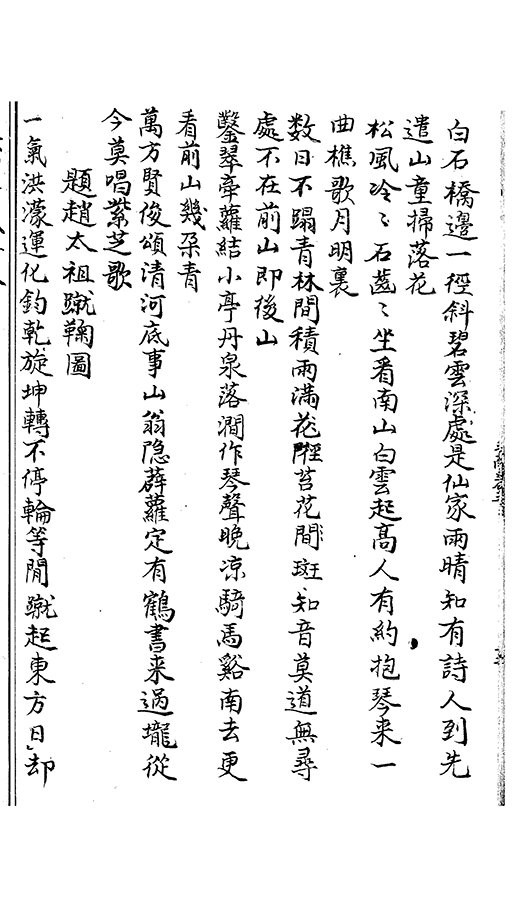 白石橋邊一徑斜碧雲深處是仙家雨晴知有詩人到先
遣山童掃落花
松風冷〻石齒〻坐看南山白雲起高人有約抱琴来一
曲樵歌月明裏
数日不蹋青林間積雨滿花陘苔花間斑知音莫道無尋
處不在前山即後山
鑿翠牽蘿結小亭丹泉落澗作琴聲晚凉騎馬谿南去更
看前山幾朶青
萬方賢俊頌清河底事山翁隐薜蘿定有鶴書来過壠從
今莫唱紫芝歌
題趙太祖蹴鞠圖
一氣洪濛運化鈞乾旋坤轉不停輪等閒蹴起東方日却